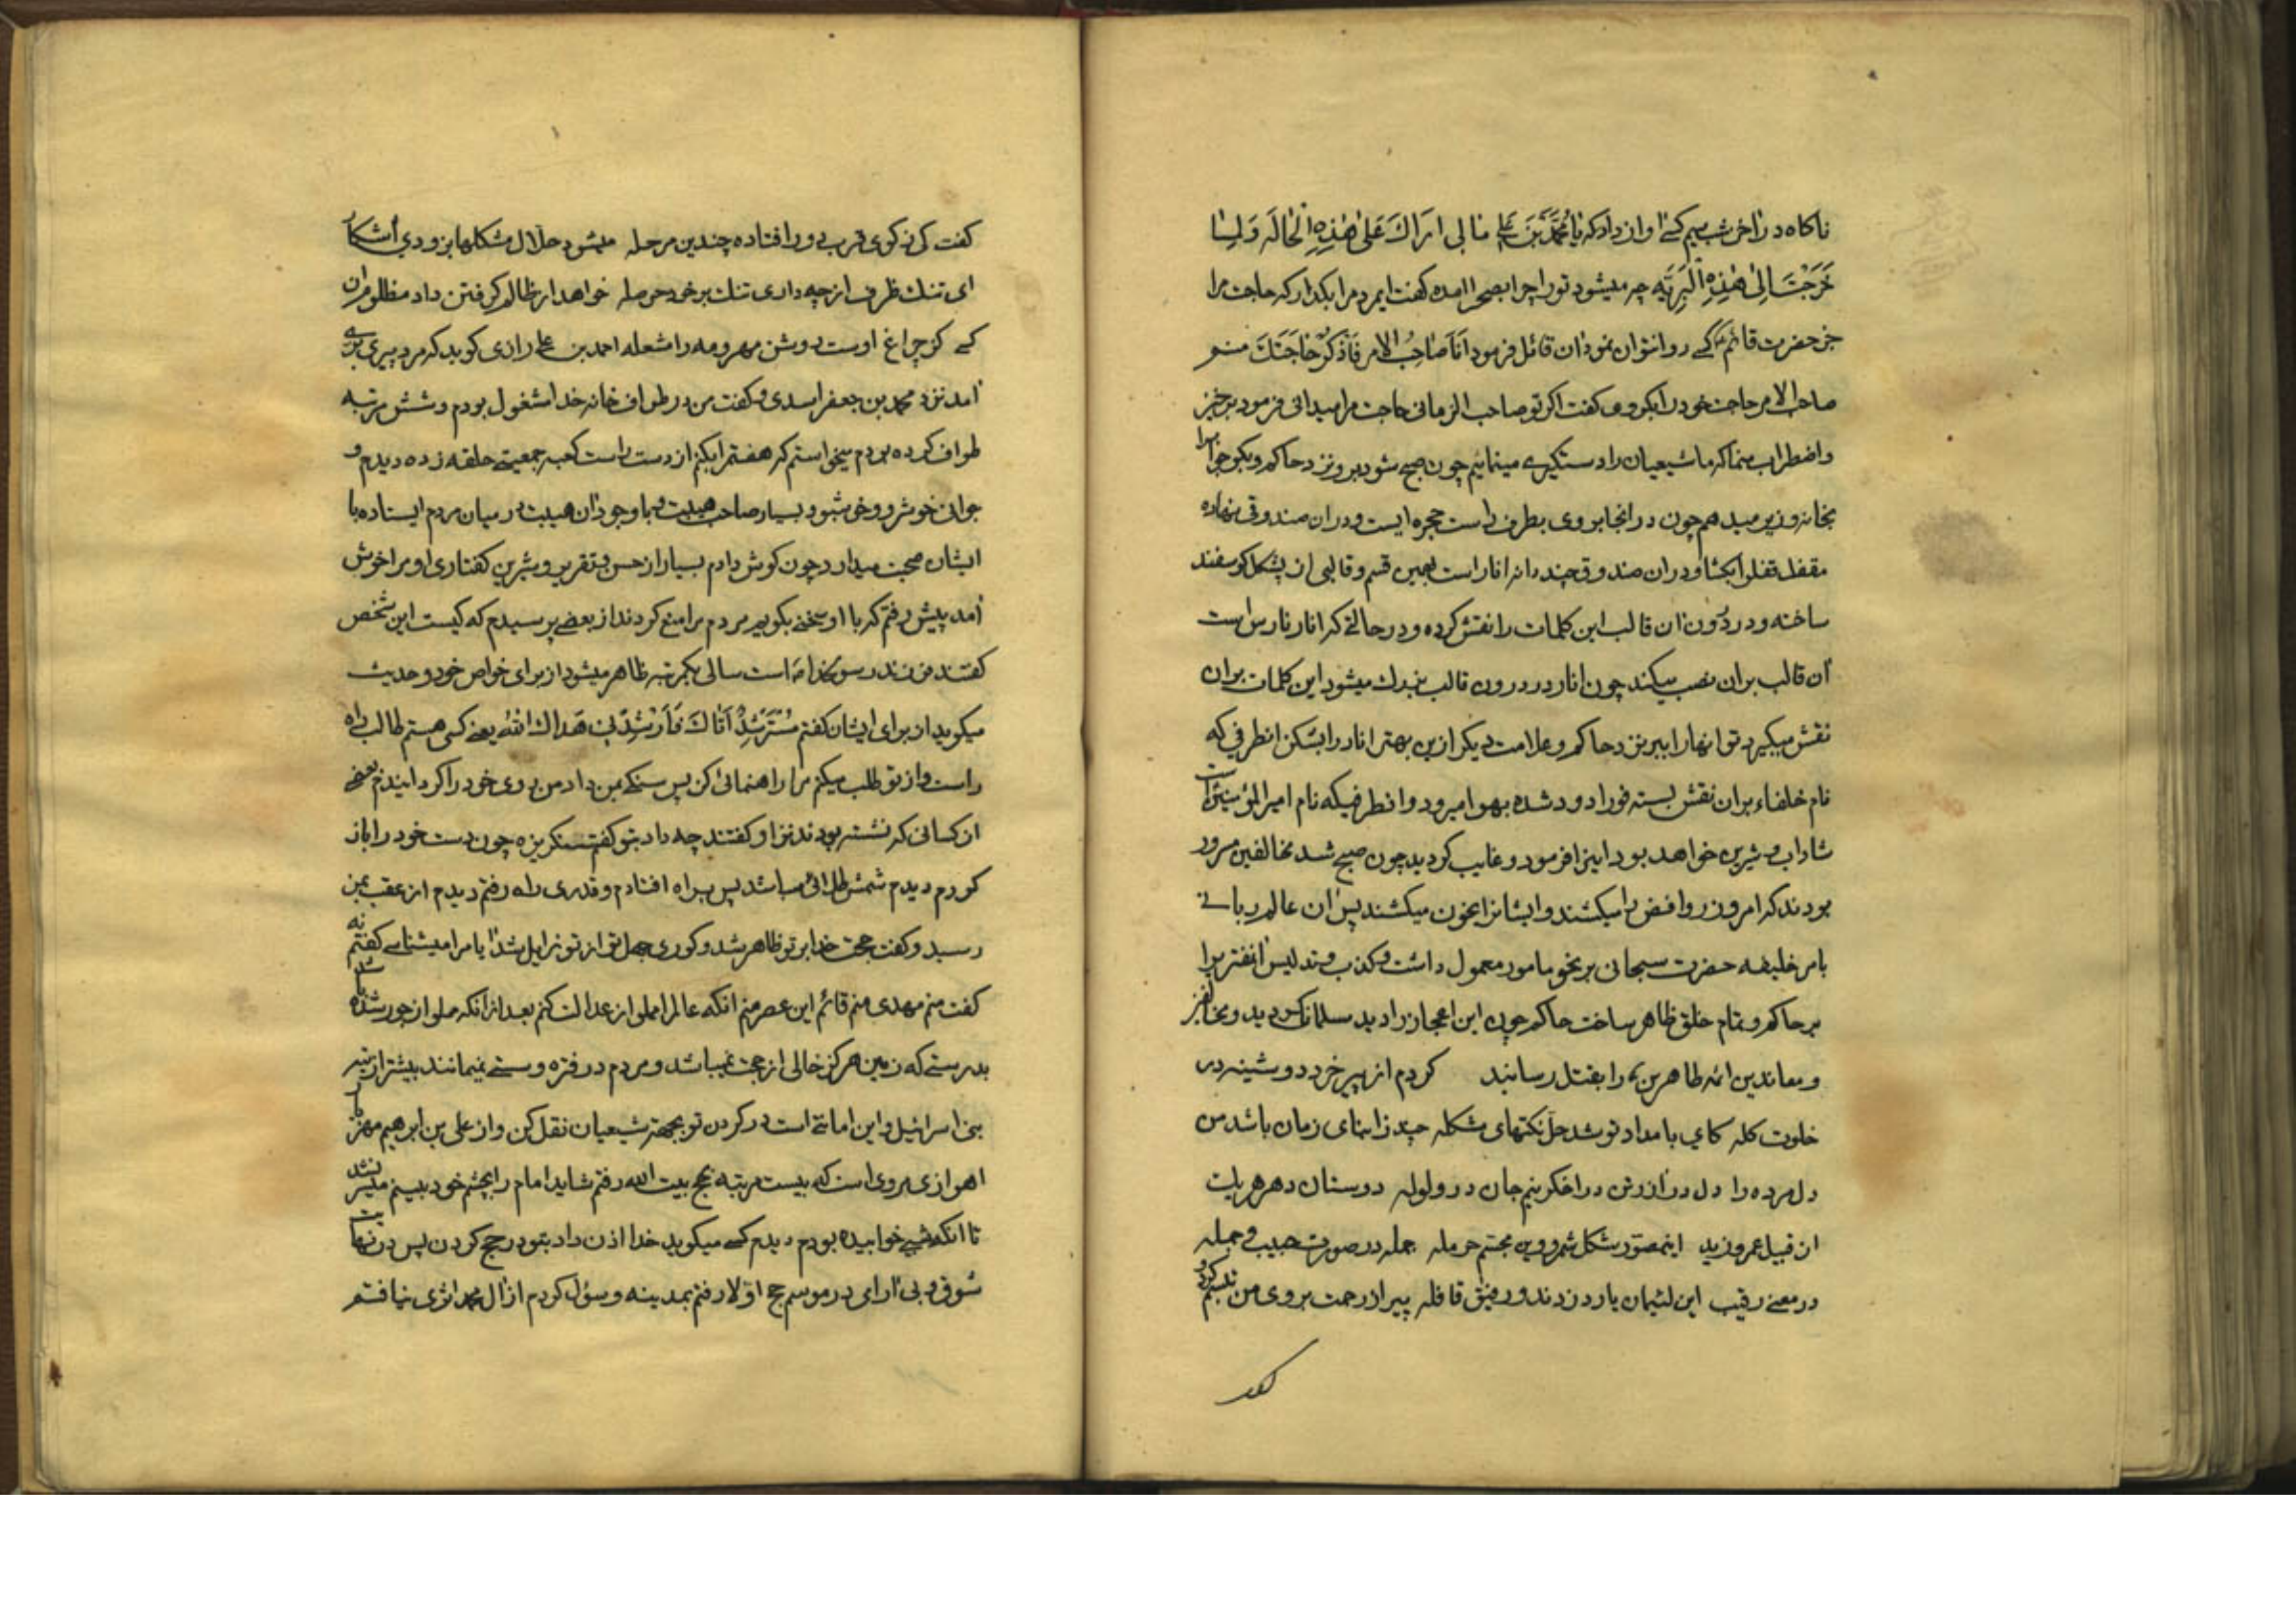 ناکاه در اخر شب سیم کسے اواز داد که یا مُحَمَّدَ بْنَ عَلِی مٰا لی اَرَاكَ عَلیٰ هٰذِهِ الْحٰالَهِ وَلِمٰا
خَرَجْتَ اِلیٰ هٰذِهِ الْبَرِیَّهِ چه میشود تو را چرا بصحرا امده کفت ایمرد مرا بکذار که حاجت مرا
جز حضرت قائم کسے روا نتوان نمود ان قائل فرمود اَنَا صٰاحِبُ الاَمر فَاذْکُرْ حٰاجَتَكَ منم
صاحب الامر حاجت خود را بکو وی کفت اکر تو صاحب الزمانی حاجت مرا میدانی فرمود برخیز
و اضطراب منما که ما شیعیان را دستکیرے مینمائیم چون صبح شود برو نزد حاکم و بکو جوابرا
بخانه وزیر میدهم چون در انجا بروی بطرف راست حجره ایست و دران صندوقی نهاده
مقفل قفلرا بکشا و دران صندوق چند دانه انار است بهمین قسم و قالبی از پشکل کوسفند
ساخته و در درون ان قالب این کلمات را نقش کرده و در حالتے که انار نارس است
ان قالب بران نصب میکند چون انار در درون قالب بزرك میشود این کلمات بران
نقش میکیرد تو انها را ببر نزد حاکم و علامت دیکر ازین بهتر انار را بشکن انطرفی که
نام خلفاء بران نقش بسته فورا دود شده بهوا میرود و انطرفیکه نام امیر المؤمنین است
شاداب و شیرین خواهد بود اینرا فرمود و غایب کردید چون صبح شد مخالفین مسرور
بودند که امروز روافض را میکشند و ایشانرا بخون میکشند پس ان عالم ربانے
بامر خلیفه حضرت سبحانی بر نحو مامور معمول داشت و کذب و تدلیس انفتریرا
بر حاکم و تمام خلق ظاهر ساخت حاکم چون این اعجاز را دید مسلمان کردید و مخالفین
و معاندین ائمه طاهرین را بقتل رسانید کردم از پیر خرد دوشینه در
خلوت کله کای بامداد تو شد حل نکتهای مشکله چیند زابنای زمان باشد من
دل مرده را دل در اذرش در اخکر بنم جان در ولوله دوستان دهر هر یك
از قبیل عمرو و زید اینمصوّر شکل شمر و وین مجسّم حرمله جمله در صورت حبیب و جمله
در معنے رقیب این لئیمان یار دزدند و رفیق قافله پیر از رحمت بروی من تبسم کرد و
کفت
کفت کی ز کوی قرب دور افتاده چندین مرحله میشود حلّال مشکلها بزودی آشکار
ای تنك ظرف از چه داری تنك بر خود حوصله خواهد از ظالم کرفتن داد مظلومران
کے کز چراغ اوست روشن مهر و مه را مشعله احمد بن علی رازی کوید که مرد پیری برے
امد نزد محمد بن جعفر اسدی و کفت من در طواف خانه خدا مشغول بودم و شش مرتبه
طواف کرده بودم میخواستم که هفتم را بکنم از دست راست کعبه جمعیتے حلقه زده دیدم و
جوانی خوشرو و خوشبو و بسیار صاحب هیبت و با وجود ان هیبت در میان مردم ایستاده با
ایشان صحبت میدارد چون کوش دادم بسیار از حسن تقریر و شیرین کفتاری او مرا خوش
امد پیش رفتم که با او سخنے بکویم مردم مرا منع کردند از بعضے پرسیدم که کیست این شخص
کفتند فرزند رسولخدا است سالی یکمرتبه ظاهر میشود از برای خواص خود و حدیث
میکوید از برای ایشان کفتم مُسْتَرْشِدٌ اَتٰاكَ فَاَرْشِدْنی هَداكَ اللهُ یعنے کسی هستم طالب راه
راست و از تو طلب میکنم مرا راهنمائی کن پس سنکے بمن داد من روی خود را کردانیدم بعضے
از کسانی که نشسته بودند نزد او کفتند چه داد بتو کفتم سنکریزه چون دست خود را باز
کردم دیدم شمش طلائی میباشد پس براه افتادم و قدری راه رفتم دیدم از عقب بمن
رسید و کفت حجت خدا بر تو ظاهر شد و کوری جهل تو از تو زایل شد ایا مرا میشناسے کفتم نه
کفت منم مهدی منم قائم این عصر منم انکه عالم را مملو از عدالت کنم بعد از انکه مملو از جور شده باشد
بدرستے که زمین هرکز خالی از حجت نمیباشد و مردم در فتره و سستے نمیمانند بیشتر از تیه
بنی اسرائیل و این امانتے است در کردن تو بجهة شیعیان نقل کن و از علی بن ابرهیم مهزیار
اهوازی مروی است که بیست مرتبه بحج بیت الله رفتم شاید امام را بچشم خود ببینم میسر نشد
تا انکه شبے خوابیده بودم دیدم کسے میکوید خدا اذن داد بتو در حج کردن پس در نهایت
شوق و بی ارای در موسم حج اوّلا رفتم بمدینه و سؤل کردم از ال محمد اثری نیافتم